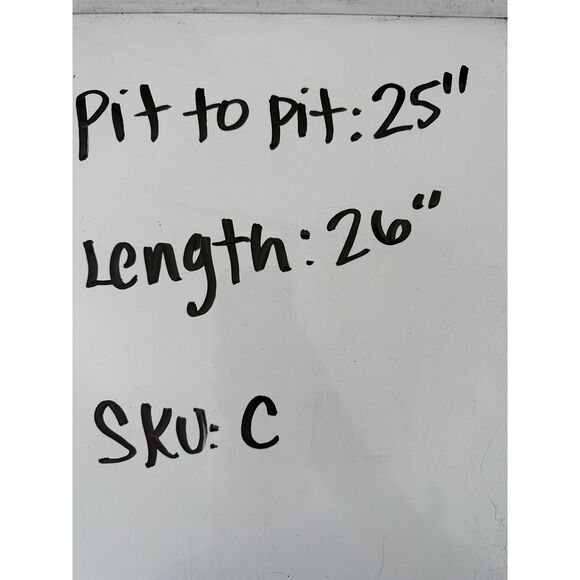 Pit to pit: 25"
Length: 26"
SKU: C